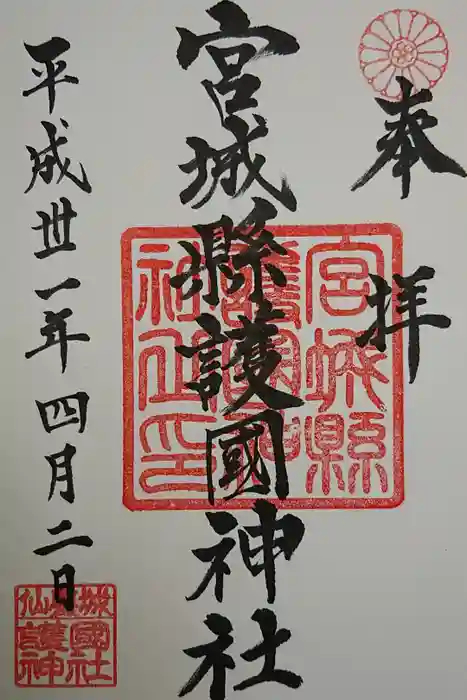 奉拝
宮城縣護國神社
宮城縣
護國神
社之印
平成卅一年四月二日
城國社
仙臺護神